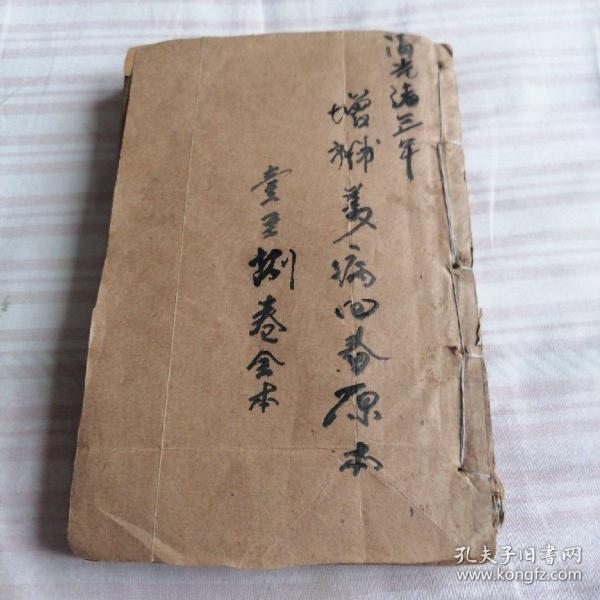 清光绪三年
增补萬病回春原本
壹至捌卷全本
孔夫子旧书网
www.kongfz.com